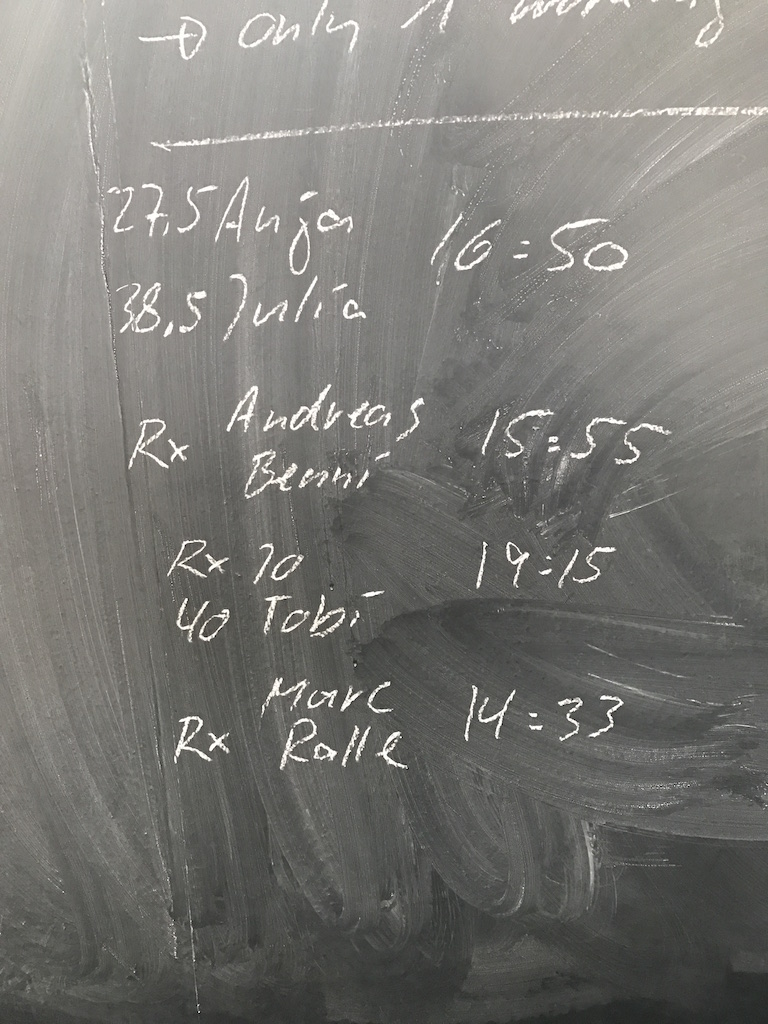 → only 1 working
27,5 Anja 16:50
38,5 Julia
Rx Andreas 15:55
Benni
Rx Jo 19:15
40 Tobi
Marc 14:33
Rx Ralle